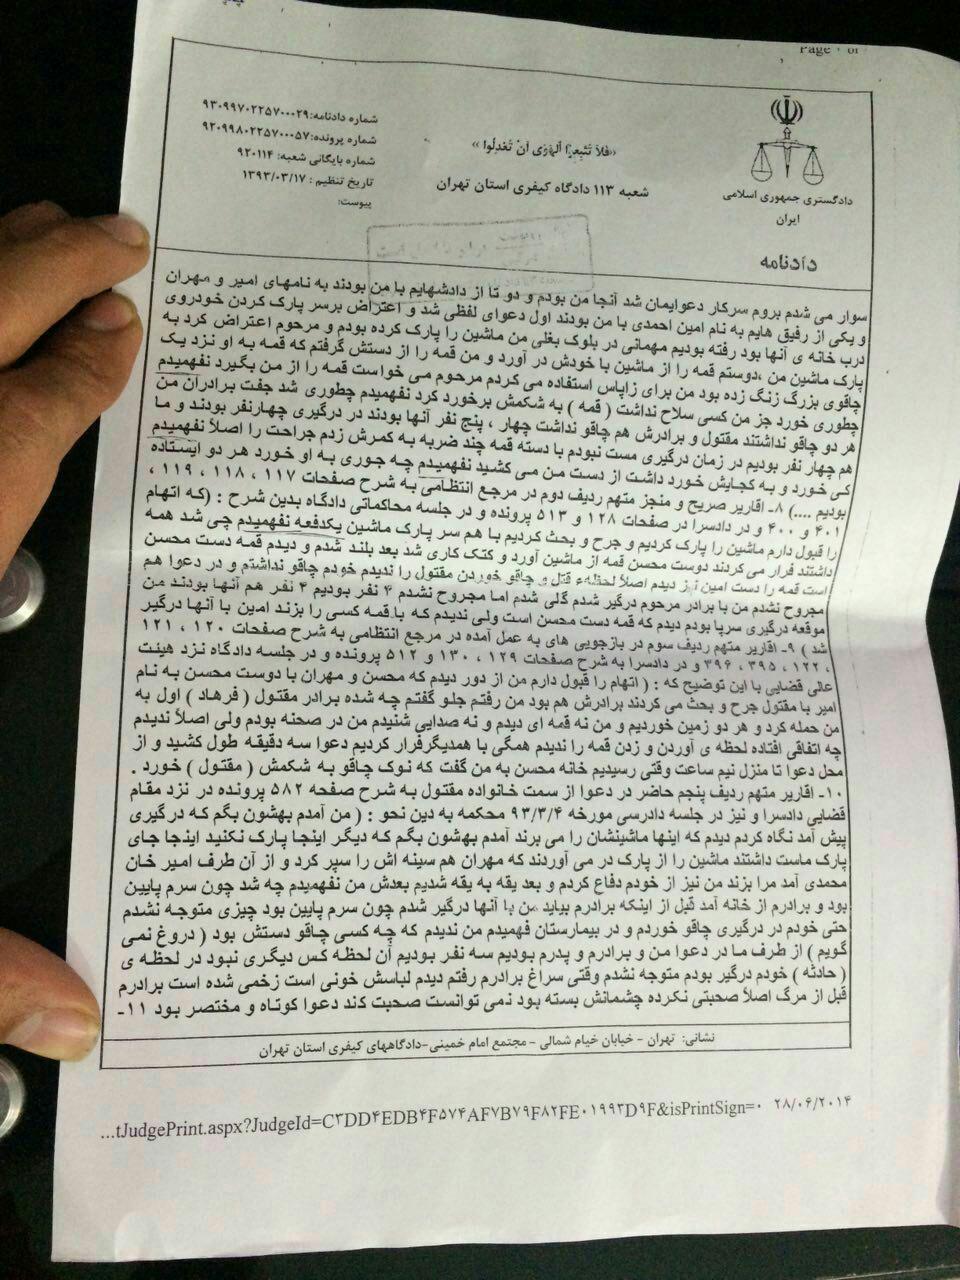 Page ۱ of
دادگستری جمهوری اسلامی
ایران
«فلا تتبعوا الهوی ان تعدلوا»
شعبه ۱۱۳ دادگاه کیفری استان تهران
شماره دادنامه:۹۳۰۹۹۷۰۲۲۵۷۰۰۰۲۹
شماره پرونده:۹۲۰۹۹۸۰۲۲۵۷۰۰۰۵۷
شماره بایگانی شعبه: ۹۲۰۱۱۴
تاریخ تنظیم : ۱۳۹۳/۰۳/۱۷
پیوست:
دادنامه
سوار می شدم بروم سرکار دعوایمان شد آنجا من بودم و دو تا از دادشهایم با من بودند به نامهای امیر و مهران
و یکی از رفیق هایم به نام امین احمدی با من بودند اول دعوای لفظی شد و اعتراض برسر پارک کردن خودروی
درب خانه ی آنها بود رفته بودیم مهمانی در بلوک بغلی من ماشین را پارک کرده بودم و مرحوم اعتراض کرد به
پارک ماشین من ،دوستم قمه را از ماشین با خودش در آورد و من قمه را از دستش گرفتم که قمه به او نزد یک
چاقوی بزرگ زنگ زده بود من برای زاپاس استفاده می کردم مرحوم می خواست قمه را از من بگیرد نفهمیدم
چطوری خورد جز من کسی سلاح نداشت ( قمه ) به شکمش برخورد کرد نفهمیدم چطوری شد جفت برادران من
هر دو چاقو نداشتند مقتول و برادرش هم چاقو نداشت چهار ، پنج نفر آنها بودند در درگیری چهارنفر بودند و ما
هم چهار نفر بودیم در زمان درگیری مست نبودم با دسته قمه چند ضربه به کمرش زدم جراحت را اصلاً نفهمیدم
کی خورد و به کجایش خورد داشت از دست من می کشید نفهمیدم چه جوری به او خورد هر دو ایستاده
بودیم ....) ۸- اقاریر صریح و منجز متهم ردیف دوم در مرجع انتظامی به شرح صفحات ۱۱۷ ، ۱۱۸ ، ۱۱۹ ،
۴۰۱ و ۴۰۰ و در دادسرا در صفحات ۱۲۸ و ۵۱۳ پرونده و در جلسه محاکماتی دادگاه بدین شرح : (که اتهام
را قبول دارم ماشین را پارک کردیم و جرح و بحث کردیم با هم سر پارک ماشین یکدفعه نفهمیدم چی شد همه
داشتند فرار می کردند دوست محسن قمه از ماشین آورد و کتک کاری شد بعد بلند شدم و دیدم قمه دست محسن
است قمه را دست امین نیز دیدم اصلاً لحظه قتل و چاقو خوردن مقتول را ندیدم خودم چاقو نداشتم و در دعوا هم
مجروح نشدم من با برادر مرحوم درگیر شدم گلی شدم اما مجروح نشدم ۴ نفر بودیم ۴ نفر هم آنها بودند من
موقعه درگیری سرپا بودم دیدم که قمه دست محسن است ولی ندیدم که با قمه کسی را بزند امین با آنها درگیر
شد ) ۹- اقاریر متهم ردیف سوم در بازجویی های به عمل آمده در مرجع انتظامی به شرح صفحات ۱۲۰ ، ۱۲۱
، ۱۲۲ ، ۳۹۵ ، ۳۹۶ و در دادسرا به شرح صفحات ۱۲۹ ، ۱۳۰ و ۵۱۲ پرونده و در جلسه دادگاه نزد هیئت
عالی قضایی با این توضیح که : ( اتهام را قبول دارم من از دور دیدم که محسن و مهران با دوست محسن به نام
امیر با مقتول جرح و بحث می کردند برادرش هم بود من رفتم جلو گفتم چه شده برادر مقتول ( فرهاد ) اول به
من حمله کرد و هر دو زمین خوردیم و من نه قمه ای دیدم و نه صدایی شنیدم من در صحنه بودم ولی اصلاً ندیدم
چه اتفاقی افتاده لحظه ی آوردن و زدن قمه را ندیدم همگی با همدیگرفرار کردیم دعوا سه دقیقه طول کشید و از
محل دعوا تا منزل نیم ساعت وقتی رسیدیم خانه محسن به من گفت که نوک چاقو به شکمش ( مقتول ) خورد .
۱۰- اقاریر متهم ردیف پنجم حاضر در دعوا از سمت خانواده مقتول به شرح صفحه ۵۸۲ پرونده در نزد مقام
قضایی دادسرا و نیز در جلسه دادرسی مورخه ۹۳/۳/۴ محکمه به دین نحو : ( من آمدم بهشون بگم که درگیری
پیش آمد نگاه کردم دیدم که اینها ماشینشان را می برند آمدم بهشون بگم که دیگر اینجا پارک نکنید اینجا جای
پارک ماست داشتند ماشین را از پارک در می آوردند که مهران هم سینه اش را سپر کرد و از آن طرف امیر خان
محمدی آمد مرا بزند من نیز از خودم دفاع کردم و بعد یقه به یقه شدیم بعدش من نفهمیدم چه شد چون سرم پایین
بود و برادرم از خانه آمد قبل از اینکه برادرم بیاید من با آنها درگیر شدم چون سرم پایین بود چیزی متوجه نشدم
حتی خودم در درگیری چاقو خوردم و در بیمارستان فهمیدم من ندیدم که چه کسی چاقو دستش بود ( دروغ نمی
گویم ) از طرف ما در دعوا من و برادرم و پدرم بودیم سه نفر بودیم آن لحظه کس دیگری نبود در لحظه ی
( حادثه ) خودم درگیر بودم متوجه نشدم وقتی سراغ برادرم رفتم دیدم لباسش خونی است زخمی شده است برادرم
قبل از مرگ اصلاً صحبتی نکرده چشمانش بسته بود نمی توانست صحبت کند دعوا کوتاه و مختصر بود ۱۱-
نشانی: تهران - خیابان خیام شمالی - مجتمع امام خمینی-دادگاههای کیفری استان تهران
...tJudgePrint.aspx?JudgeId=C۳DD۴EDB۴F۵۷۴AF۷B۷۹F۸۲FE۰۱۹۹۳D۹F&isPrintSign=۰ ۲۸/۰۶/۲۰۱۴